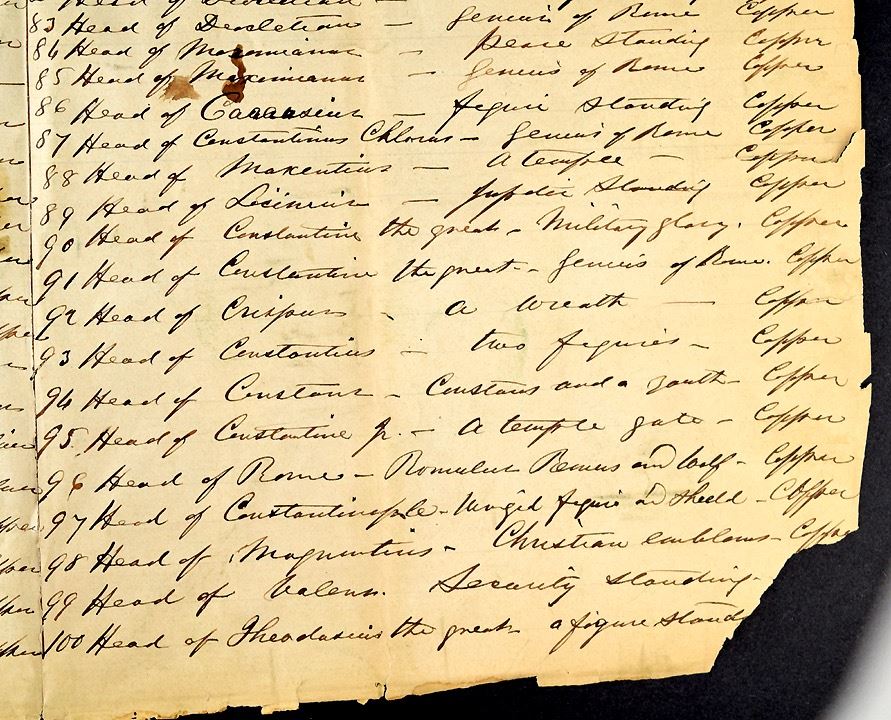 83 Head of Diocletian — Genius of Rome Copper
84 Head of Maximianus — Peace Standing Copper
85 Head of Maximianus — Genius of Rome Copper
86 Head of Carausius — figure Standing Copper
87 Head of Constantinus Chlorus — Genius of Rome Copper
88 Head of Maxentius — A temple — Copper
89 Head of Licinius — Jupiter Standing Copper
90 Head of Constantine the great - Military glory. Copper
91 Head of Constantine the great - Genius of Rome. Copper
92 Head of Crispus - A Wreath — Copper
93 Head of Constantius - two figures - Copper
94 Head of Constans - Constans and a youth - Copper
95 Head of Constantine Jr. - A temple gate - Copper
96 Head of Rome - Romulus Remus and Wolf - Copper
97 Head of Constantinople - Winged figure and Shield - Copper
98 Head of Magnentius - Christian emblems - Copper
99 Head of Valens. Security Standing -
100 Head of Theodosius the great a figure Stand